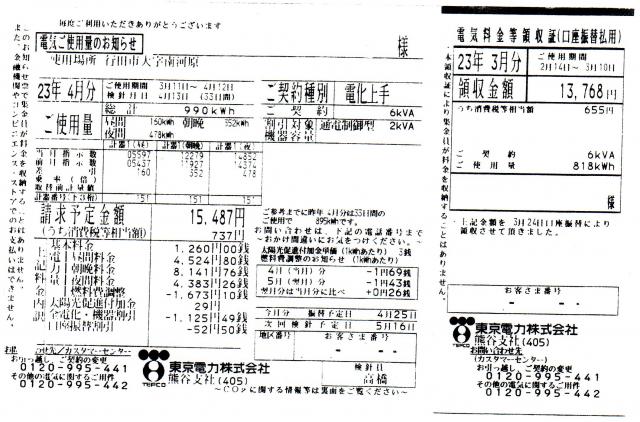 毎度ご利用いただきありがとうございます
電気ご使用量のお知らせ
様
使用場所 行田市大字南河原
23年 4月分
ご使用期間 3月11日～ 4月12日
検針月日 4月13日(33日間)
ご契約種別 電化上手
ご使用量
総計 990kWh
昼間 160kWh 朝晩 352kWh
夜間 478kWh
ご契約 6kVA
割引対象 通電制御型 2kVA
機器容量
計器1(昼) 計器1(朝晩) 計器1(夜)
当月指示数 05597 12279 14852
前月指示数 05437 11927 4374
差引 160 352 478
乗率(倍)
取替前計量値
計器番号(下3桁) 151 151 151
請求予定金額 15,487円
(うち消費税等相当額) 737円
上記料金内訳
基本料金 1,260円00銭
電昼間料金 4,524円80銭
力朝晩料金 8,141円76銭
量夜間料金 4,383円26銭
燃料費調整 -1,673円10銭
太陽光促進付加金 29円
全電化・機器割引 -1,125円49銭
口座振替割引 -52円50銭
ご参考までに昨年 4月分は33日間の
ご使用で 895kWhです。
お問い合わせは、下記の電話番号まで
～おかけ間違いにお気をつけください。～
太陽光促進付加金単価(1kWhあたり) 3銭
燃料費調整のお知らせ(1kWhあたり)
4月(当月)分 -1円69銭
5月(翌月)分 -1円43銭
翌月分は当月分に比べ +0円26銭
今月分 振替予定日 4月25日
次回検針予定日 5月16日
地区番号 お客さま番号
検針員
高橋
お問い合わせ先/カスタマーセンター
お引っ越し、ご契約の変更
0120-995-441
その他の電気に関するご用件
0120-995-442
TEPCO
東京電力株式会社
熊谷支社(405)
～CO₂に関する情報等は裏面をご覧ください～
このお知らせ票で集金員が料金を収納することはありません。
また、金融機関やコンビニエンス・ストアでのお支払いはできません。
電気料金等領収証(口座振替払用)
様
23年 3月分
ご使用期間
2月14日～ 3月10日
領収金額 13,768円
うち消費税等相当額 655円
ご契約 6kVA
ご使用量 818kWh
上記金額を 3月24日口座振替により
領収させて頂きました。
お客さま番号
・本領収証により集金員が料金を収納することはありません。
TEPCO
東京電力株式会社
熊谷支社(405)
お問い合わせ先
(カスタマーセンター)
お引っ越し、ご契約の変更
0120-995-441
その他の電気に関するご用件
0120-995-442